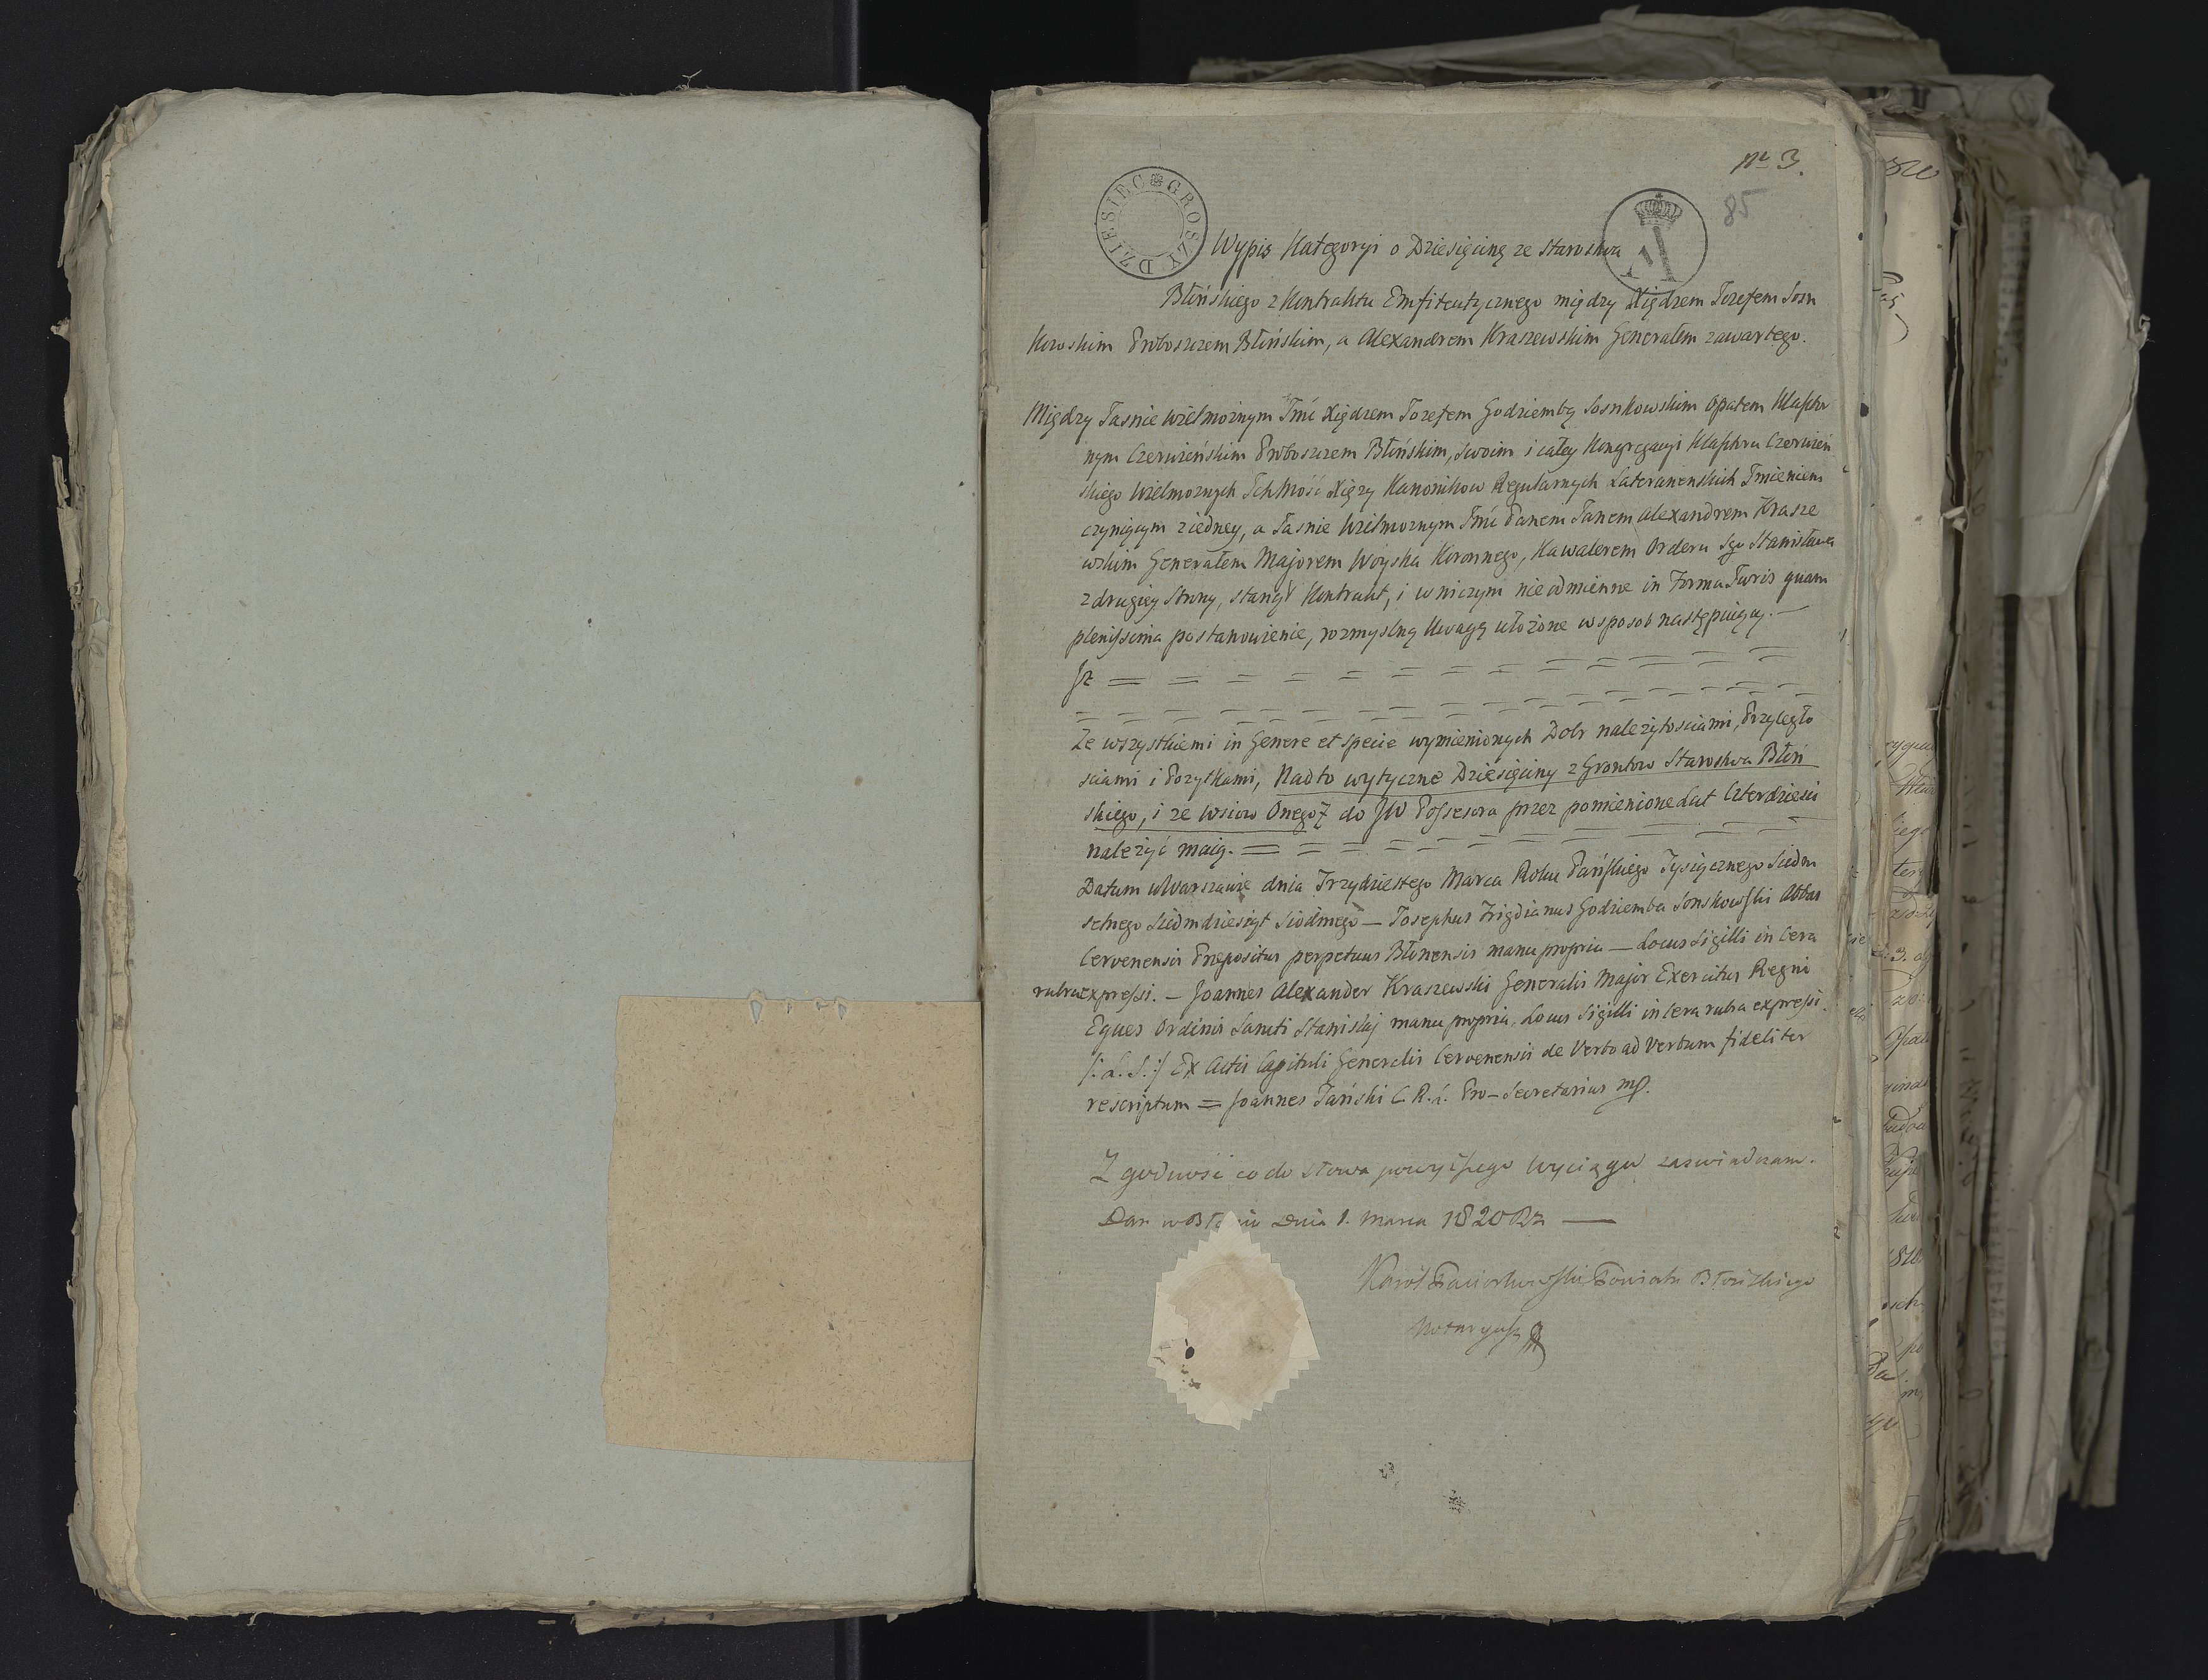 nr 3.
85
DZIESIEC GROSZY
Wypis Kategoryi o Dziesięcinę ze Starostwa
Błińskiego z Kontraktu Emfiteutycznego między Xiędzem Jozefem Sosn
kowskim Proboszczem Błińskim, a Alexandrem Kraszewskim Generałem zawartego.
Między Jasnie Wielmożnym Jmć Xiędzem Jozefem Godziembą Sosnkowskim Opatem Klasztor
nym Czerwieńskim Proboszczem Błińskim, swoim i całey Kongregacyi Klasztoru Czerwień
skiego Wielmoznych Ichmość Xięży Kanonikow Regularnych Lateranenskich Imieniem
czyniącym z iedney, a Jasnie Wielmoznym Jmć Panem Janem Alexandrem Krasze
wskim Generałem Majorem Woyska Koronnego, Kawalerem Orderu Sgo Stanisława
z drugiey Strony, stanął Kontrakt, i w niczym nieodmienne in Forma Juris quam
plenissima postanowienie, rozmyslną Uwagą ułożone w sposob następuiący. —
Jż = = = = = = = = = = = =
Ze wszystkiemi in Genere et specie wymienionych Dobr nalezytosciami, Przyległo
sciami i Pozytkami, Nadto wytyczne Dziesięciny z Grontow Starostwa Błoń
skiego, i ze wsiow Onegoż do JW Possesora przez pomienione Lat Czterdziesci
należyć maią. = = = = = = = = =
Datum w Warszawie dnia Trzydziestego Marca Roku Pańskiego Tysiącznego Siedm
setnego Siedmdziesiąt Siodmego — Josephus Frigdianus Godziemba Sonskowski Abbas
Cervenensis Prepositus perpetuus Błonensis manu propria — Locus Sigilli in Cera
rubra expressi. — Joannes Alexander Kraszewski Generalis Major Exercitus Regni
Eques Ordinis Sancti Stanislaj manu propria. Locus Sigilli in Cera rubra expressi.
/: L. S. :/ Ex Actis Capituli Generalis Cervenensis de Verbo ad Verbum fideliter
rescriptum = Joannes Jański C. R. L. Pro-Secretarius mp.
Zgodność co do słowa powyższego wyciągu zaswiadczam.
Dan w Błoniu Dnia 1. Marca 1820 Rn —
Karól Paciorkowski Powiatu Błońskiego
Notaryusz